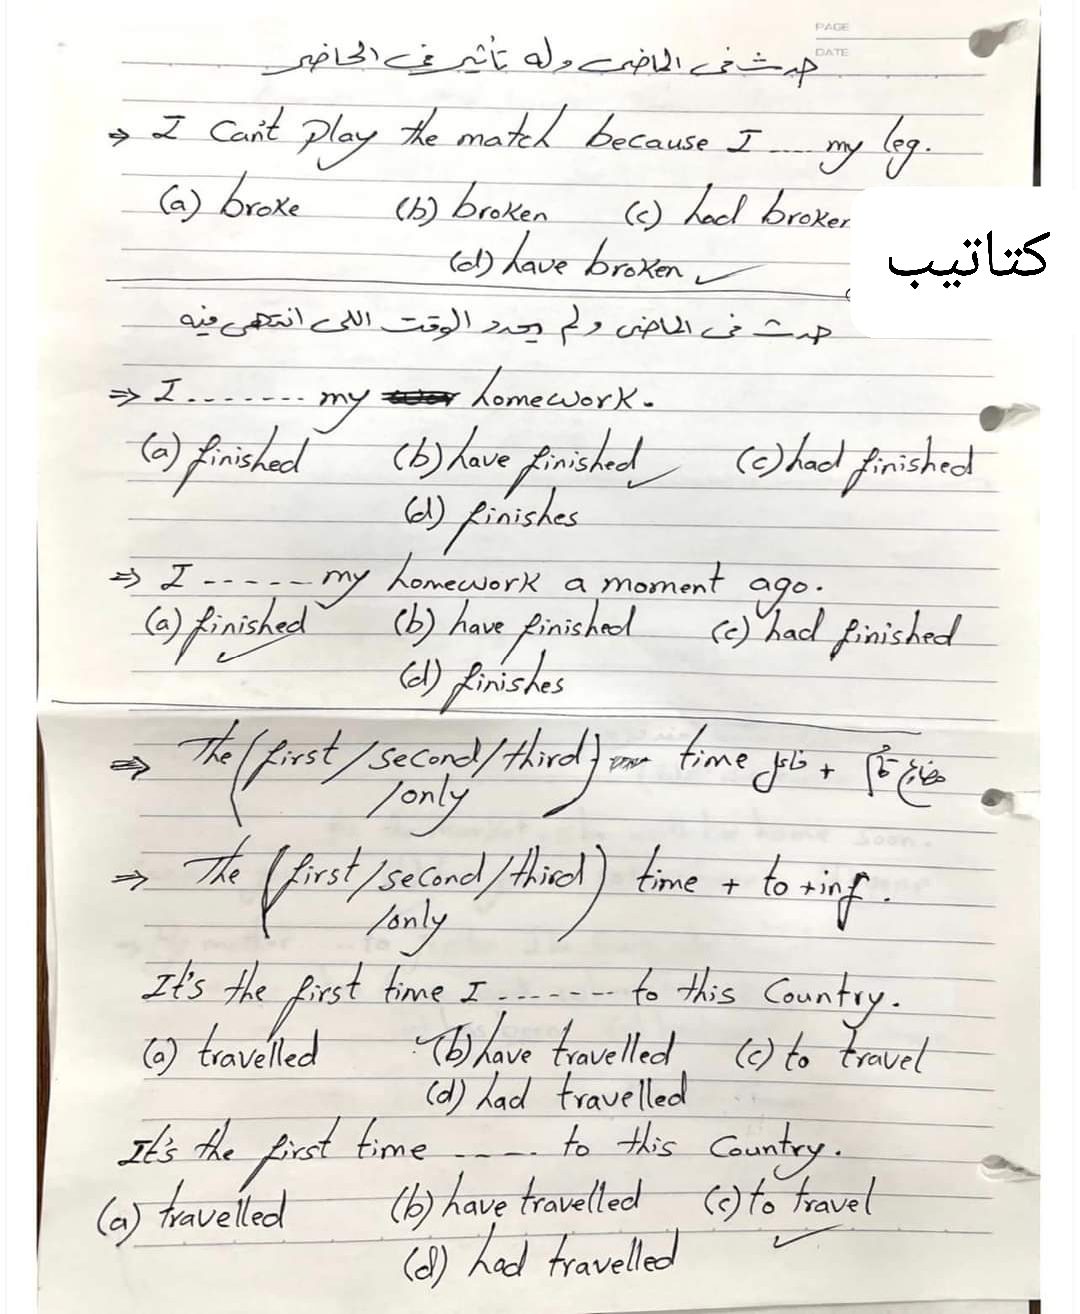 PAGE
DATE
حدث فى الماضى وله تأثير في الحاضر
⇒ I Can't play the match because I .... my leg.
(a) broke (b) broken (c) had broken
(d) have broken ✓
كتاتيب
حدث فى الماضى ولم يحدد الوقت اللى انتهى فيه
⇒ I ........ my homework.
(a) finished (b) have finished ✓ (c) had finished
(d) finishes
⇒ I ------ my homework a moment ago.
(a) finished ✓ (b) have finished (c) had finished
(d) finishes
⇒ The (first/second/third) time فاعل + مضارع تام
/only
⇒ The (first/second/third) time + to + inf.
/only
It's the first time I ------- to this Country.
(a) travelled ✓ (b) have travelled (c) to travel
(d) had travelled
It's the first time ----- to this Country.
(a) travelled (b) have travelled (c) to travel ✓
(d) had travelled